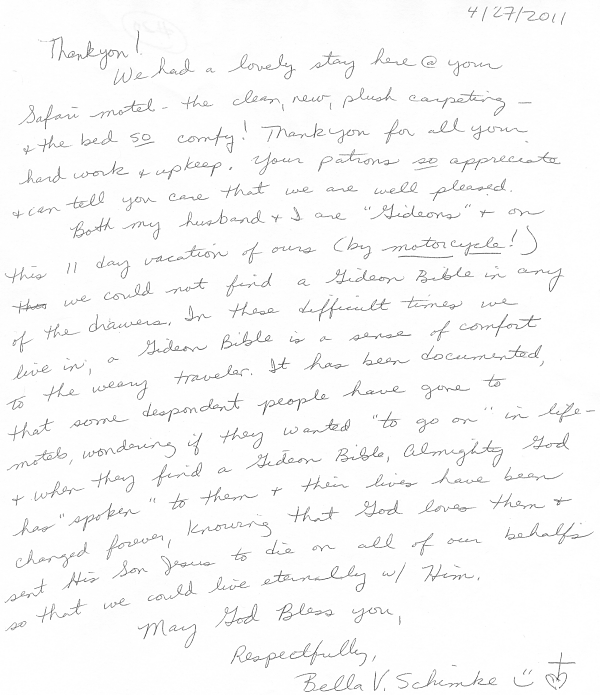 4/27/2011
Thankyou!
We had a lovely stay here @ your
Safari motel - the clean, new, plush carpeting -
& the bed so comfy! Thankyou for all your
hard work & upkeep. Your patrons so appreciate
& can tell you care that we are well pleased.
Both my husband & I are "Gideons" & on
this 11 day vacation of ours (by motorcycle!)
we could not find a Gideon Bible in any
of the drawers. In these difficult times we
live in, a Gideon Bible is a sense of comfort
to the weary traveler. It has been documented,
that some despondent people have gone to
motels, wondering if they wanted "to go on" in life -
& when they find a Gideon Bible, Almighty God
has "spoken" to them & their lives have been
changed forever, knowing that God loves them &
sent His Son Jesus to die on all of our behalfs
so that we could live eternally w/ Him.
May God Bless you,
Respectfully,
Bella V. Schimke